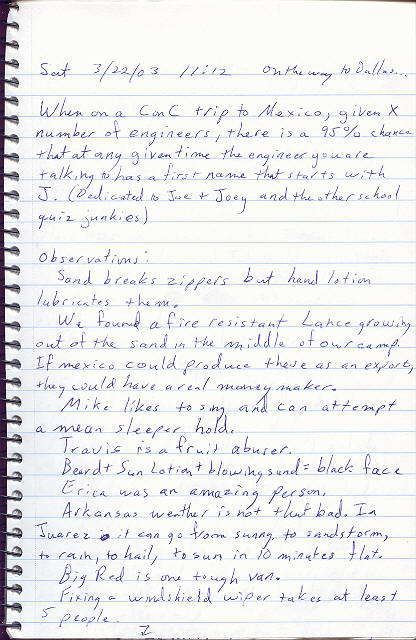 Sat 3/22/03 11:12 On the way to Dallas...
When on a ConC trip to Mexico, given X
number of engineers, there is a 95% chance
that at any given time the engineer you are
talking to has a first name that starts with
J. (Dedicated to Joe + Joey and the other school
quiz junkies)
Observations:
Sand breaks zippers but hand lotion
lubricates them.
We found a fire resistant Lance growing
out of the sand in the middle of our camp.
If mexico could produce these as an export,
they could have a real money maker.
Mike likes to sing and can attempt
a mean sleeper hold.
Travis is a fruit abuser.
Beard + Sun Lotion + blowing sand = black face
Erica was an amazing person.
Arkansas weather is not that bad. In
Juarez it can go from sunny, to sandstorm,
to rain, to hail, to sun in 10 minutes flat.
Big Red is one tough van.
Fixing a windshield wiper takes at least
5 people.